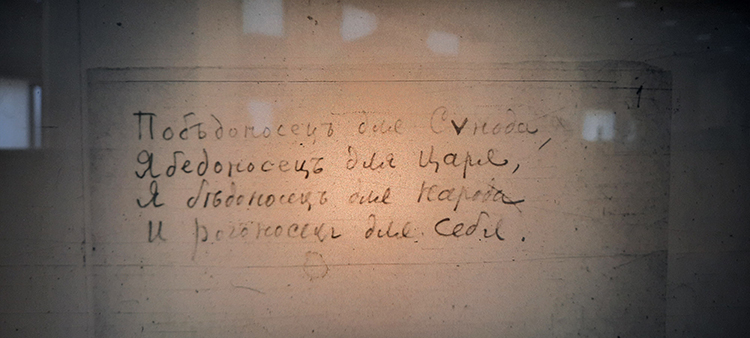 Побѣдоносецъ для Сѵнода,
Ябедоносецъ для Царя,
Я бѣдоносецъ для Народа
И рогоносецъ для себя.